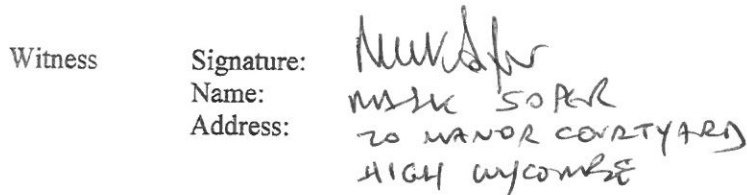 Witness Signature:
Name: MARK SOPER
Address: 20 MANOR COURTYARD
HIGH WYCOMBE